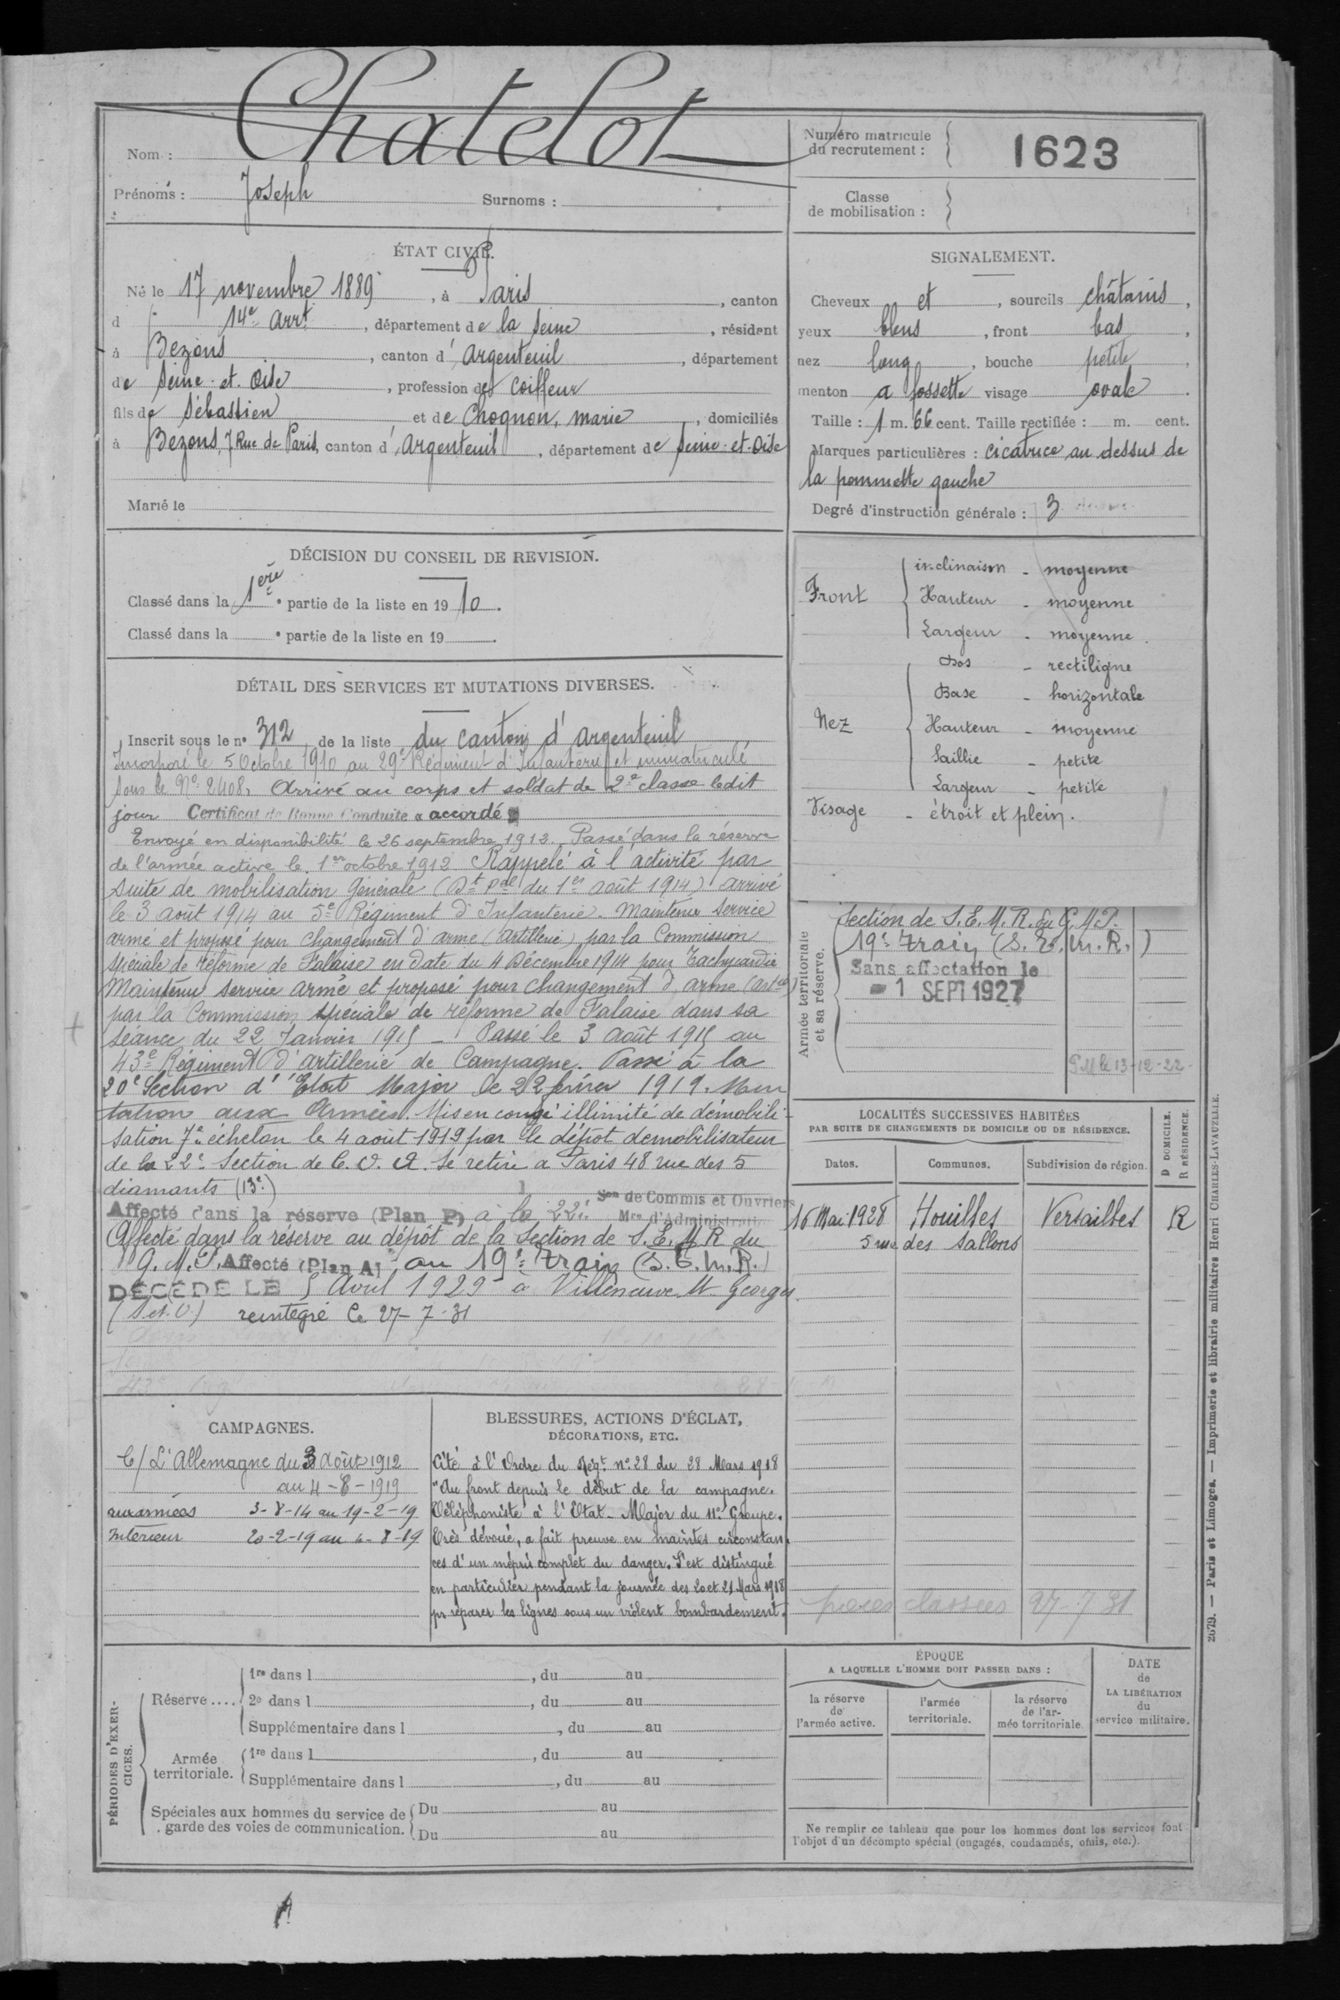 Nom : Chatelot
Prénoms : Joseph Surnoms :
Numéro matricule du recrutement : 1623
Classe de mobilisation :
ÉTAT CIVIL.
Né le 17 novembre 1889, à Paris, canton
d 14e Arrt, département de la Seine, résident
à Bezons, canton d'Argenteuil, département
de Seine-et-Oise, profession de coiffeur
fils de Sébastien et de Chognon, Marie, domiciliés
à Bezons, 7 Rue de Paris, canton d'Argenteuil, département de Seine-et-Oise
Marié le
SIGNALEMENT.
Cheveux et, sourcils châtains,
yeux bleus, front bas,
nez long, bouche petite,
menton a fossette visage ovale.
Taille : 1 m. 66 cent. Taille rectifiée : m. cent.
Marques particulières : cicatrice au dessus de
la pommette gauche
Degré d'instruction générale : 3
DÉCISION DU CONSEIL DE REVISION.
Classé dans la 1ère partie de la liste en 1910.
Classé dans la e partie de la liste en 19
Front { inclinaison - moyenne
Hauteur - moyenne
Largeur - moyenne.
Nez { Dos - rectiligne
Base - horizontale
Hauteur - moyenne
Saillie - petite
Largeur - petite
Visage - étroit et plein.
DÉTAIL DES SERVICES ET MUTATIONS DIVERSES.
Inscrit sous le n° 312 de la liste du canton d'Argenteuil
Incorporé le 5 Octobre 1910 au 29e Régiment d'Infanterie et immatriculé
sous le N° 2408. Arrivé au corps et soldat de 2e classe ledit
jour Certificat de Bonne Conduite a accordé
Envoyé en disponibilité le 26 septembre 1912. Passé dans la réserve
de l'armée active le 1er octobre 1912 Rappelé à l'activité par
suite de mobilisation Générale (Dt Pdel du 1er août 1914) arrivé
le 3 août 1914 au 5e Régiment d'Infanterie. Maintenu service
armé et proposé pour changement d'arme (artillerie) par la Commission
spéciale de réforme de Falaise en date du 4 Décembre 1914 pour Tachycardie
Maintenu service armé et proposé pour changement d'arme (artie)
par la Commission spéciale de réforme de Falaise dans sa
séance du 22 Janvier 1915 - Passé le 3 août 1915 au
43e Régiment d'Artillerie de Campagne. Passé à la
20e Section d'Etat Major le 22 février 1919. Mu
tation aux Armées. Mis en congé illimité de démobili-
sation 7e échelon le 4 août 1919 par le dépôt démobilisateur
de la 22e Section de C.O.A. Se retire a Paris 48 rue des 5
diamants (13e)
Affecté dans la réserve (Plan P) à la 22e Son de Commis et Ouvriers Mres d'Administration
Affecté dans la réserve au dépôt de la Section de S.E.M.R du
G.M.P. Affecté (Plan A) au 19e Train (S.E.M.R.)
DÉCÉDÉ LE 5 Avril 1929 à Villeneuve St Georges
(S.et.O.) réintégré le 27-7-31
Armée territoriale et sa réserve.
Section de S.E.M.R. du G.M.P.
19e Train (S.E.M.R.)
Sans affectation le
1 SEPT 1927
PM le 13-12-22.
LOCALITÉS SUCCESSIVES HABITÉES
PAR SUITE DE CHANGEMENTS DE DOMICILE OU DE RÉSIDENCE.
Dates. Communes. Subdivision de région. D DOMICILE. R RÉSIDENCE.
16 Mai 1928 Houilles Versailles R
5 rue des Sablons
pièces classées 27-7-31
CAMPAGNES.
C/ L'Allemagne du 3 Août 1912
au 4-8-1919
aux armées 3-8-14 au 19-2-19
Intérieur 20-2-19 au 4-8-19
BLESSURES, ACTIONS D'ÉCLAT,
DÉCORATIONS, ETC.
Cité à l'Ordre du Régt. n° 28 du 28 Mars 1918
"Au front depuis le début de la campagne.
Téléphoniste à l'Etat-Major du 11e Groupe.
Très dévoué, a fait preuve en maintes circonstan-
ces d'un mépris complet du danger. S'est distingué
en particulier pendant la journée des 20 et 21 Mars 1918
pr réparer les lignes sous un violent bombardement.
PÉRIODES D'EXERCICES.
Réserve .... { 1re dans l , du au
2e dans l , du au
Supplémentaire dans l , du au
Armée territoriale. { 1re dans l , du au
Supplémentaire dans l , du au
Spéciales aux hommes du service de garde des voies de communication. { Du au
Du au
ÉPOQUE
A LAQUELLE L'HOMME DOIT PASSER DANS :
la réserve de l'armée active. l'armée territoriale. la réserve de l'armée territoriale.
DATE de LA LIBÉRATION du service militaire.
Ne remplir ce tableau que pour les hommes dont les services font
l'objet d'un décompte spécial (engagés, condamnés, omis, etc.).
2679. — Paris et Limoges. — Imprimerie et librairie militaires Henri CHARLES-LAVAUZELLE.